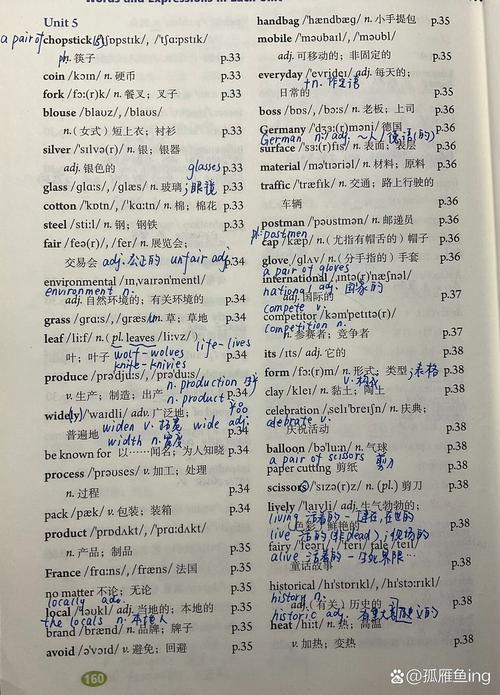 Words and Expressions in Each Unit
Unit 5
a pair of
chopstick /'tʃɒpstɪk/, /'tʃɑ:pstɪk/
n. 筷子 p.33
coin /kɔɪn/ n. 硬币 p.33
fork /fɔ:(r)k/ n. 餐叉；叉子 p.33
blouse /blaʊz/, /blaʊs/
n.（女式）短上衣；衬衫 p.33
silver /'sɪlvə(r)/ n. 银；银器
adj. 银色的 p.33
glasses
glass /glɑ:s/, /glæs/ n. 玻璃 p.33
；眼镜
cotton /'kɒtn/, /'kɑ:tn/ n. 棉；棉花 p.33
steel /sti:l/ n. 钢；钢铁 p.33
fair /feə(r)/, /fer/ n. 展览会；
交易会 p.34
adj. 公正的 unfair adj.
environmental /ɪnˌvaɪrən'mentl/
environment n.
adj. 自然环境的；有关环境的 p.34
grass /grɑ:s/, /græs/ n. 草；草地 p.34
leaf /li:f/ n. (pl. leaves /li:vz/)
叶；叶子 p.34
life-lives
wolf-wolves
knife-knivies
produce /prə'dju:s/, /prə'du:s/
v. 生产；制造；出产 p.34
n. production
n. product
widely /'waɪdli/ adv. 广泛地；
普遍地 p.34
widen v. wide adj.
width n. 宽度
be known for 以……闻名；为人知晓 p.34
process /'prəʊses/ v. 加工；处理
n. 过程 p.34
pack /pæk/ v. 包装；装箱 p.34
product /'prɒdʌkt/, /'prɑ:dʌkt/
n. 产品；制品 p.35
France /frɑ:ns/, /fræns/ 法国 p.35
no matter 不论；无论 p.35
locally adv.
local /'ləʊkl/ adj. 当地的；本地的 p.35
the locals n. 本地人
brand /brænd/ n. 品牌；牌子 p.35
avoid /ə'vɔɪd/ v. 避免；回避 p.35
160
handbag /'hændbæg/ n. 小手提包 p.35
mobile /'məʊbaɪl/, /'məʊbl/
adj. 可移动的；非固定的 p.35
everyday /'evrideɪ/ adj. 每天的；
日常的 p.35
+n.
boss /bɒs/, /bɔ:s/ n. 老板；上司 p.36
Germany /'dʒɜ:(r)məni/ 德国 p.36
German n. adj.
surface /'sɜ:(r)fɪs/ n. 表面；表层 p.36
material /mə'tɪəriəl/ n. 材料；原料 p.36
traffic /'træfɪk/ n. 交通；路上行驶的
车辆 p.36
postman /'pəʊstmən/ n. 邮递员 p.36
pl. postmen
cap /kæp/ n.（尤指有帽舌的）帽子 p.36
glove /glʌv/ n.（分手指的）手套 p.36
a pair of gloves
international /ˌɪntə(r)'næʃnəl/
national adj. 国家的
adj. 国际的 p.37
compete v.
competitor /kəm'petɪtə(r)/
competition n.
n. 参赛者；竞争者 p.38
its /ɪts/ adj. 它的 p.38
form /fɔ:(r)m/ n. 形式；类型 p.38
；表格
v. 构成
clay /kleɪ/ n. 黏土；陶土 p.38
celebration /ˌselɪ'breɪʃn/ n. 庆典；
庆祝活动 p.38
celebrate v.
balloon /bə'lu:n/ n. 气球 p.38
a pair of scissors 剪刀
paper cutting 剪纸 p.38
scissors /'sɪzə(r)z/ n. (pl.) 剪刀 p.38
lively /'laɪvli/ adj. 生气勃勃的；
living 活着的
（色彩）鲜艳的 p.38
live 活的
alive 活着的
fairy /'feəri/, /'feri/ tale /teɪl/
童话故事 p.38
historical /hɪ'stɒrɪkl/, /hɪ'stɔ:rɪkl/
history n.
adj.（有关）历史的 p.38
historic adj.
heat /hi:t/ n. 热；高温
v. 加热；变热 p.38
Baidu百科@孤雁鱼ing